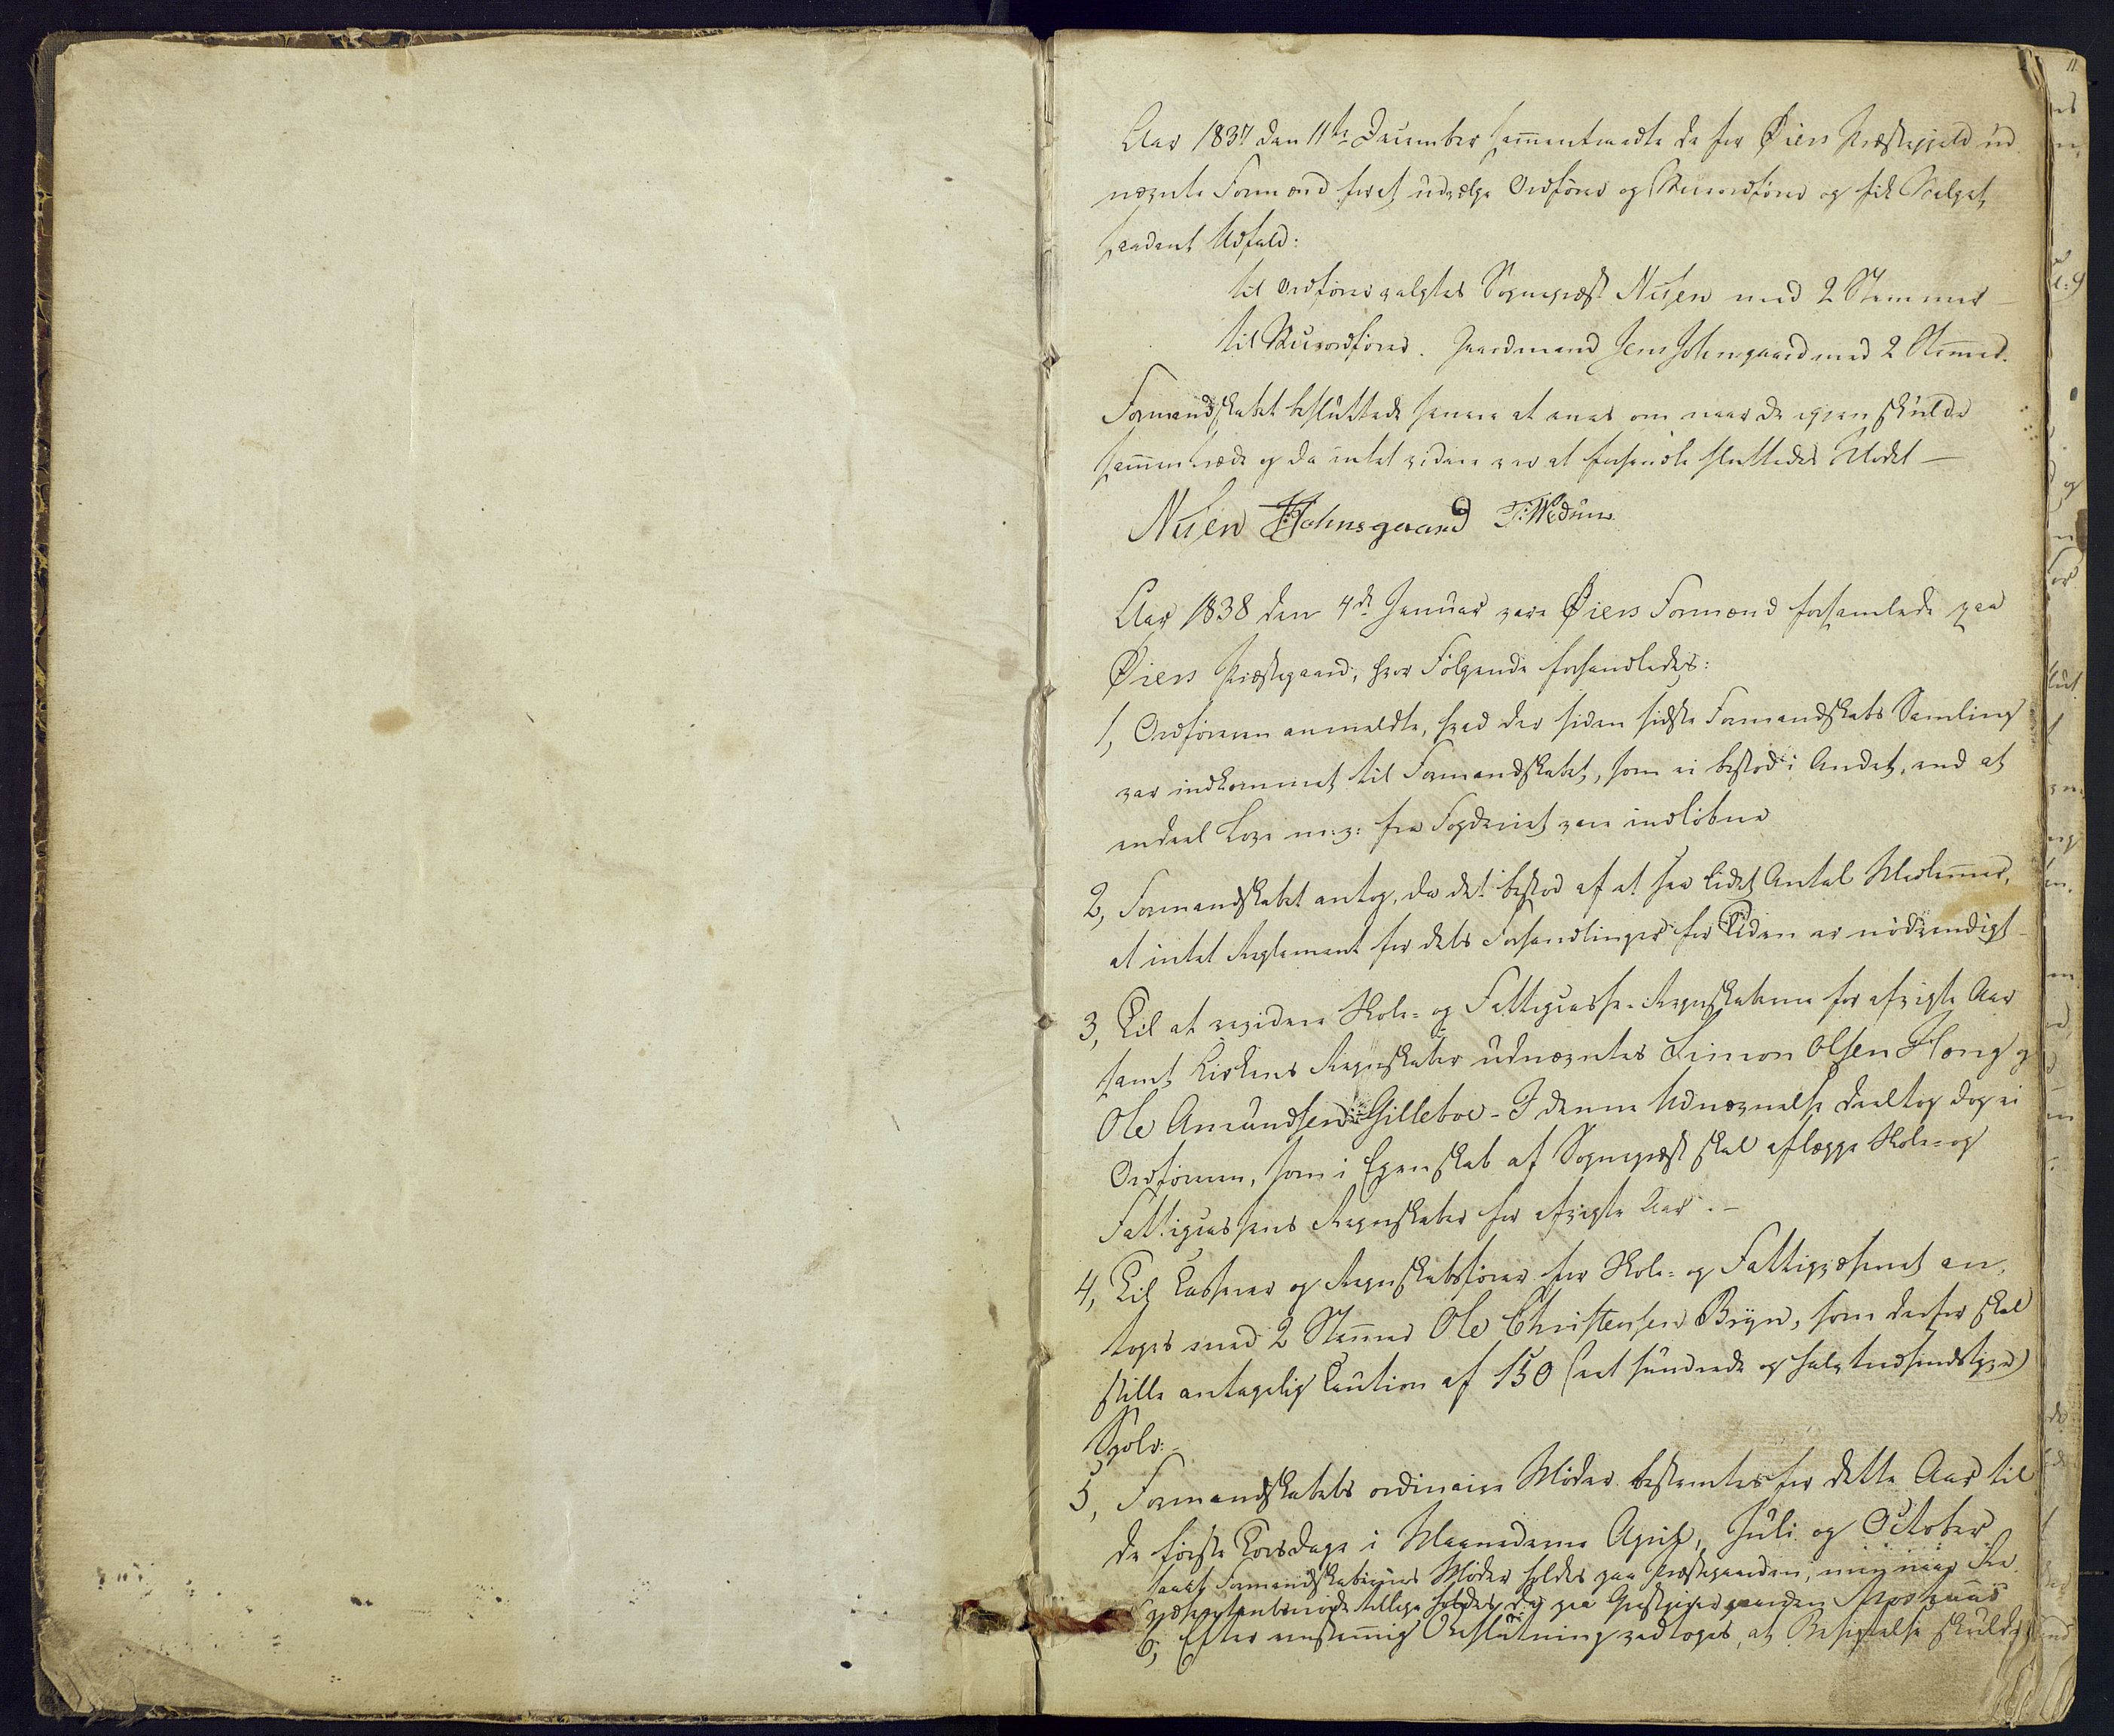 Aar 1837 den 11te December sammentraadte de for Øiers Præstegjeld ud
nævnte Formænd for at udvælge Ordfører og Viceordfører og fik Valget
saadant Udfald:
til Ordfører valgtes Sognepræst Nisen med 2 Stemmer –
til Viceordfører. Gaardmand Jens Johnsgaard med 2 Stemmer.
Formandskabet besluttede senere at enes om naar de igjen skulde
sammentræde og da intet videre var at forhandle sluttedes Mødet –
Nisen JJohnsgaard T: Wedum
Aar 1838 den 4de Januar vare Øiers Formænd forsamlede paa
Øiers Præstegaard, hvor Følgende forhandledes:
1, Ordføreren anmeldte, hvad der siden sidste Formandskabs Samling
var indkommet til Formandskabet, som ei bestod i Andet, end at
endeel Love m: v: fra Fogderiet vare indløbne
2, Formandskabet antog, da det bestod af et saa lidet Antal Medlemmer,
at intet Reglement for dets Forhandlinger for Tiden er nødvendigt –
3, Til at revidere Skole- og Fattigcasse-Regnskaberne for afvigte Aar
samt Kirkens Regnskaber udnævntes Simon Olsen Hong og
Ole Amundsen Gilleboe – I denne Udnævnelse deeltog dog ei
Ordføreren, som i Egenskab af Sognepræst skal aflægge Skole- og
Fattigcassens Regnskaber for afvigte Aar. –
4, Til Casserer og Regnskabsfører for Skole- og Fattigvæsenet an-
toges med 2 Stemmer Ole Christensen Bryn, som derfor skal
stille antagelig Caution af 150 (eet hundrede og halvtredsindstyve)
Spdlr: –
5, Formandskabets ordinaire Møder bestemtes for dette Aar til
de første Torsdage i Maanederne April, Juli og October
samt Formandskabernes Møder holdes paa Præstegaarden, men naar Re
præsentantmøde tillige holdes, da paa Gjestgivergaarden
6, Efter eenstemmig Beslutning vedtoges, at Besigtelse skulde